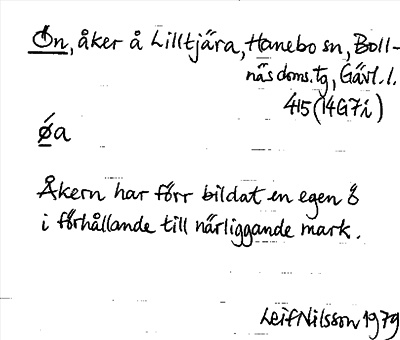 Ön, åker å Lilltjära, Hanebo sn, Boll-
näs doms. tg, Gävl. l.
415 (14G7i)
ǿa
Åkern har förr bildat en egen ö
i förhållande till närliggande mark.
Leif Nilsson 1979